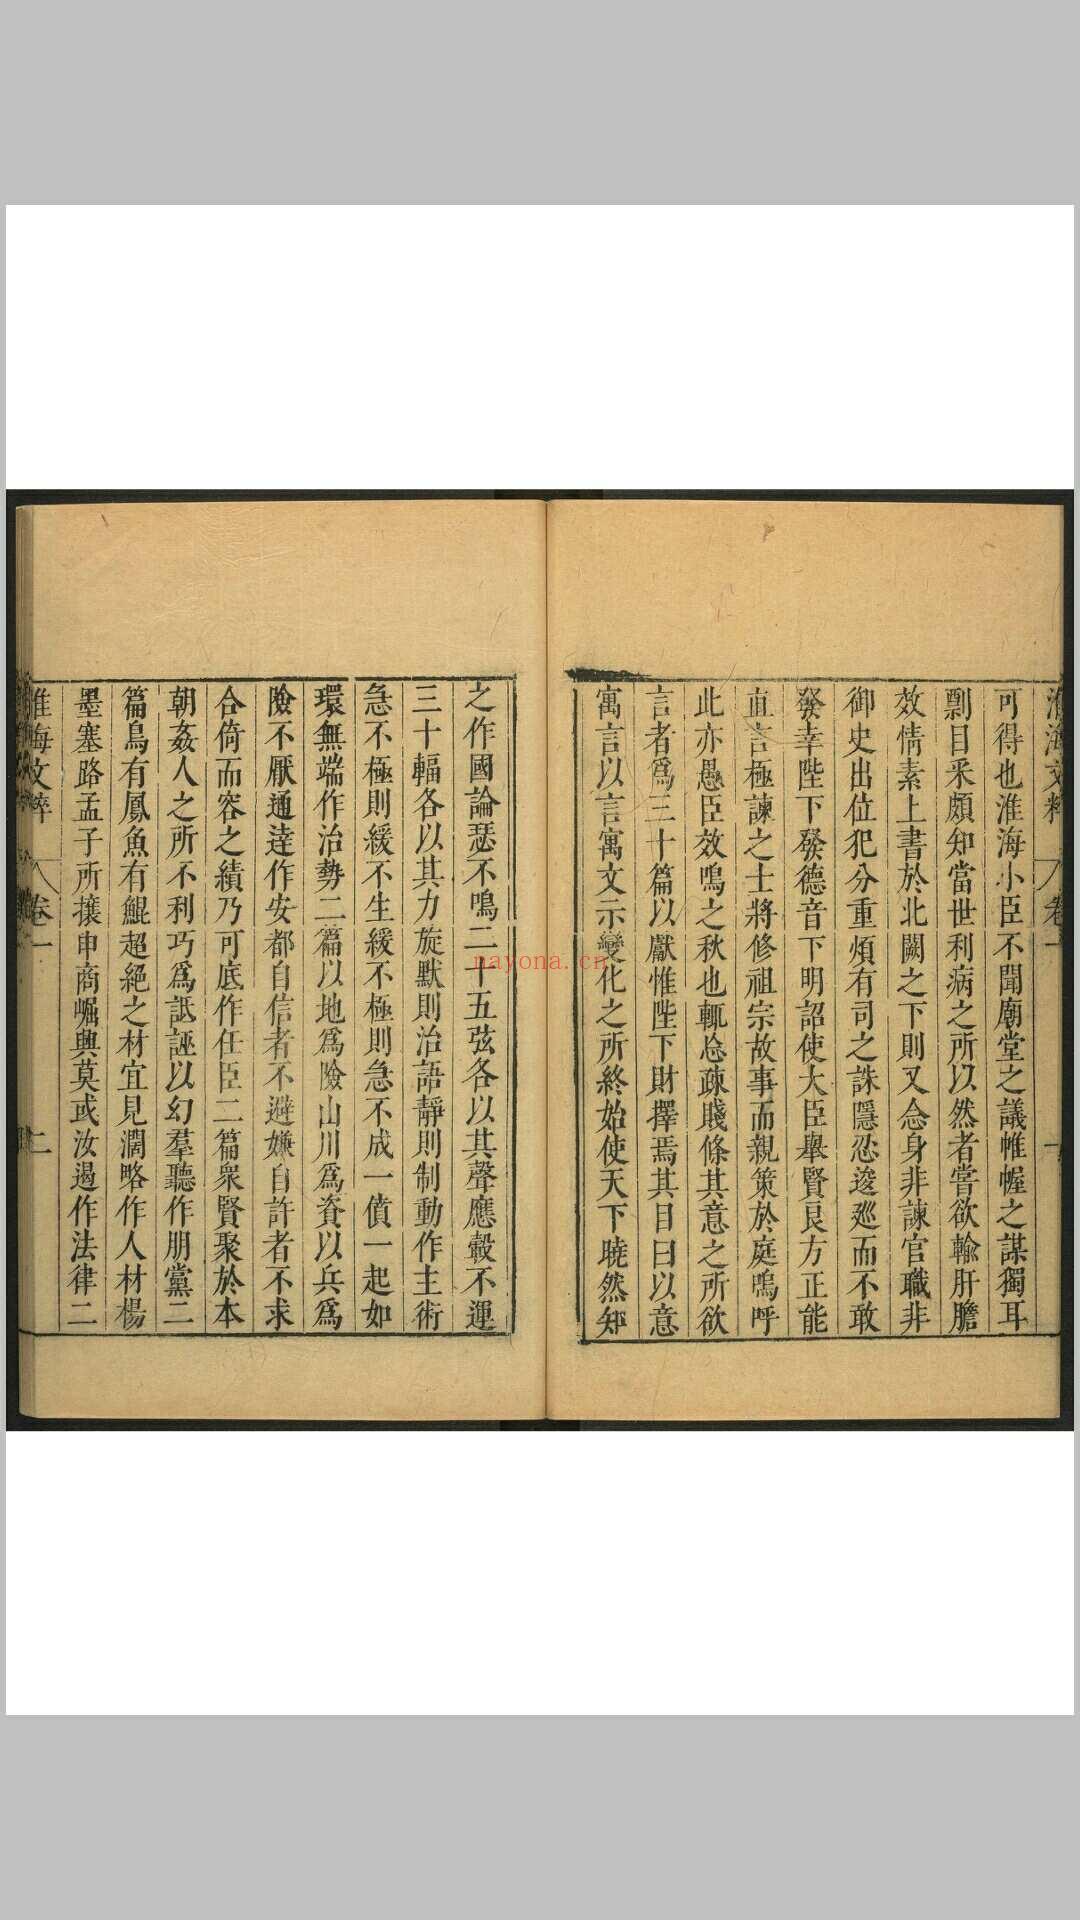 淮海文粹 卷一 一
可得也淮海小臣不聞廟堂之議帷幄之謀獨耳
剽目采頗知當世利病之所以然者嘗欲輸肝膽
效情素上書於北闕之下則又念身非諫官職非
御史出位犯分重煩有司之誅隱忍逡廵而不敢
發幸陛下發德音下明詔使大臣舉賢良方正能
直言極諫之士將修祖宗故事而親策於庭嗚呼
此亦愚臣效鳴之秋也輒忘疎賤條其意之所欲
言者爲三十篇以獻惟陛下財擇焉其目曰以意
寓言以言寓文示變化之所終始使天下曉然知
之作國論瑟不鳴二十五弦各以其聲應轂不運
三十輻各以其力旋默則治語靜則制動作主術
急不極則緩不生緩不極則急不成一僨一起如
環無端作治勢二篇以地爲險山川爲資以兵爲
險不厭通達作安都自信者不避嫌自許者不求
合倚而容之績乃可底作任臣二篇衆賢聚於本
朝姦人之所不利巧爲詆誣以幻羣聽作朋黨二
篇鳥有鳳魚有鯤超絕之材宜見濶略作人材楊
墨塞路孟子所攘申商崛興莫或汝遏作法律二
淮海文粹 卷一 二
nayona.cn